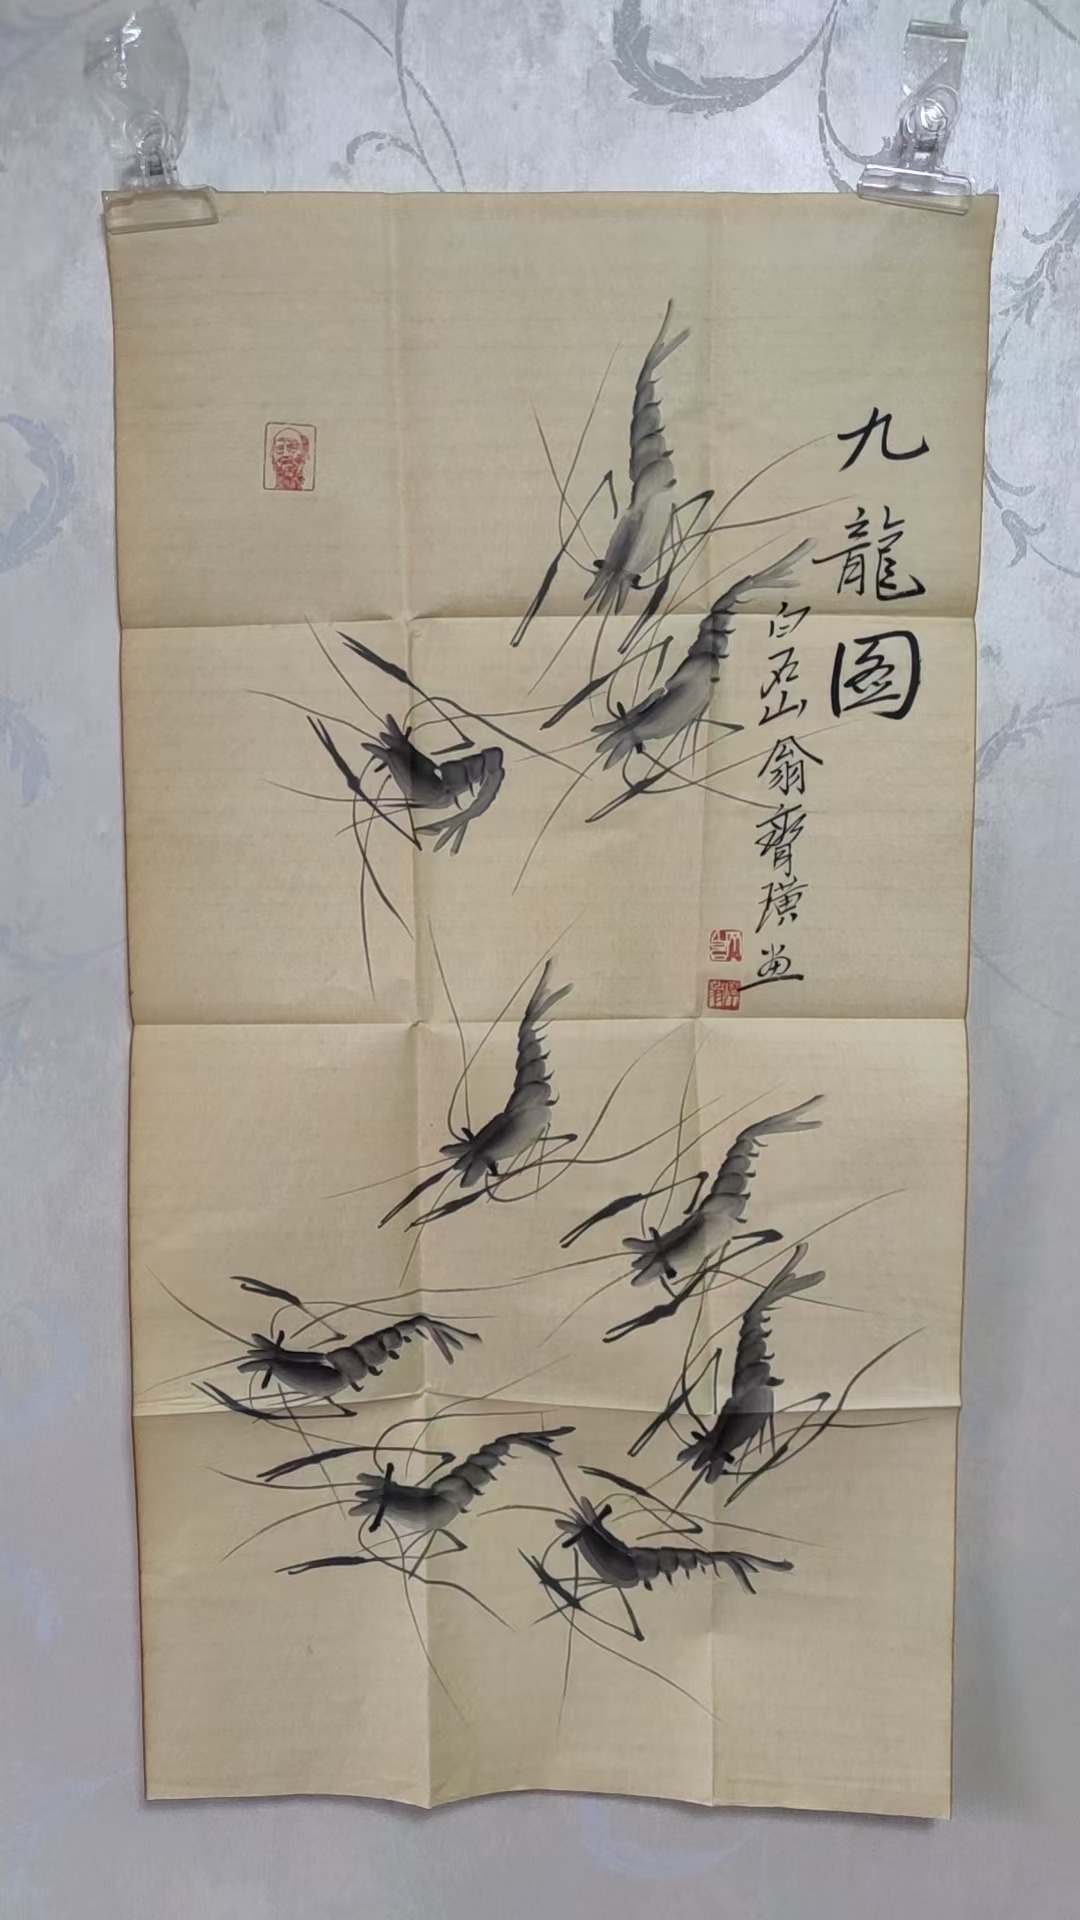 九龍图
白石山翁齊璜画